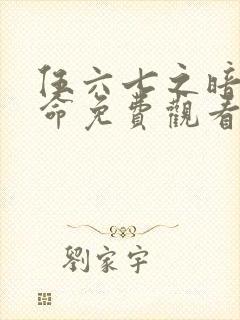 伍六七之暗
命免費觀看
劉家宇